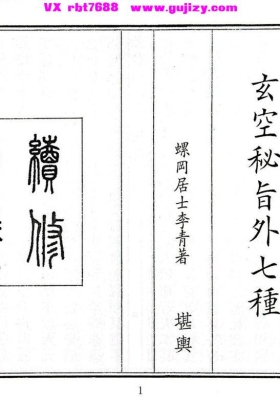 VX rbt7688 www.gujizy.com
玄空秘旨外七種
螺岡居士李青著 堪輿
續修
1